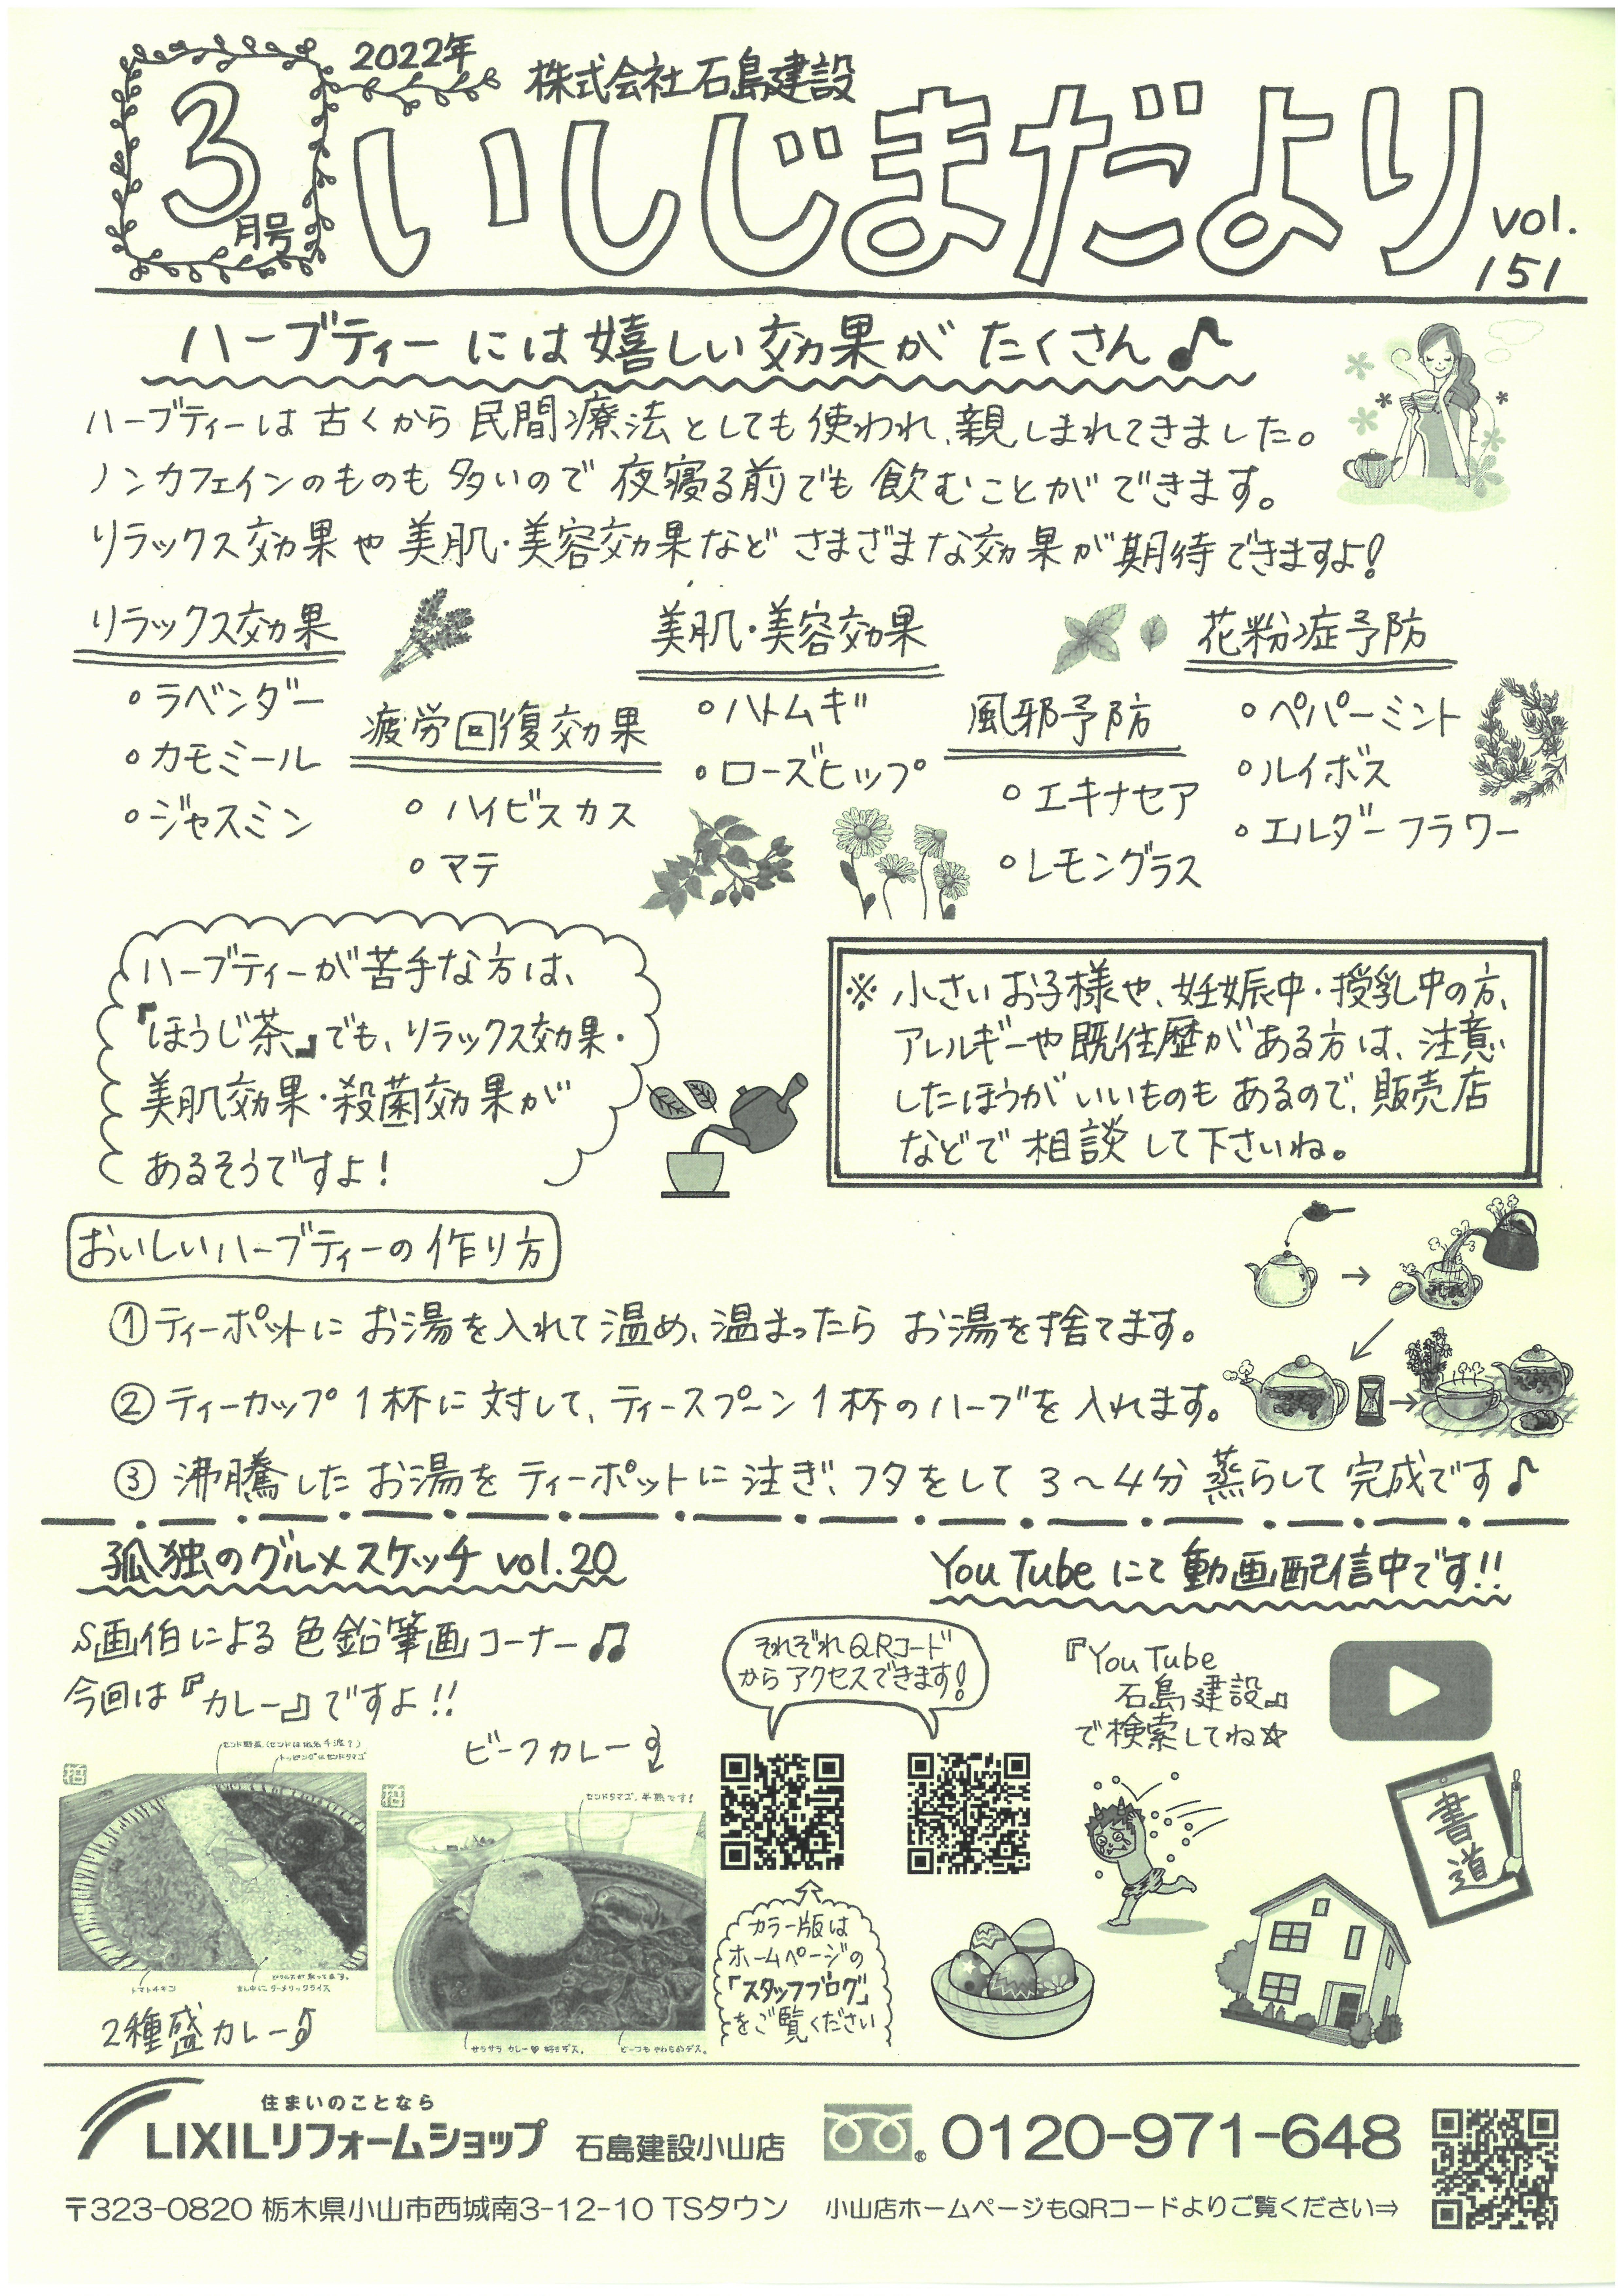 2022年
3月号
株式会社石島建設
いしじまだより
vol.
151
ハーブティーには嬉しい効果がたくさん♪
ハーブティーは古くから民間療法としても使われ、親しまれてきました。
ノンカフェインのものも多いので夜寝る前でも飲むことができます。
リラックス効果や美肌・美容効果などさまざまな効果が期待できますよ!
リラックス効果
・ラベンダー
・カモミール
・ジャスミン
疲労回復効果
・ハイビスカス
・マテ
美肌・美容効果
・ハトムギ
・ローズヒップ
風邪予防
・エキナセア
・レモングラス
花粉症予防
・ペパーミント
・ルイボス
・エルダーフラワー
ハーブティーが苦手な方は、
『ほうじ茶』でも、リラックス効果・
美肌効果・殺菌効果が
あるそうですよ!
※小さいお子様や、妊娠中・授乳中の方、
アレルギーや既往歴がある方は、注意
したほうがいいものもあるので、販売店
などで相談して下さいね。
おいしいハーブティーの作り方
①ティーポットにお湯を入れて温め、温まったらお湯を捨てます。
②ティーカップ1杯に対して、ティースプーン1杯のハーブを入れます。
③沸騰したお湯をティーポットに注ぎ、フタをして3〜4分蒸らして完成です♪
孤独のグルメスケッチ vol.20
S画伯による色鉛筆画コーナー♫
今回は『カレー』ですよ!!
ビーフカレー♪
センドタマゴ。半熟です!
トッピングはセンドタマゴ
トマトチキン
まん中にターメリックライス
サラサラカレー♥好きデス。
ビーフもやわらかデス。
2種盛カレー♪
YouTubeにて動画配信中です!!
それぞれQRコード
からアクセスできます!
『YouTube
石島建設』
で検索してね☆
カラー版は
ホームページの
「スタッフブログ」
をご覧ください
書道
住まいのことなら
LIXILリフォームショップ 石島建設小山店
0120-971-648
〒323-0820 栃木県小山市西城南3-12-10 TSタウン
小山店ホームページもQRコードよりご覧ください⇒